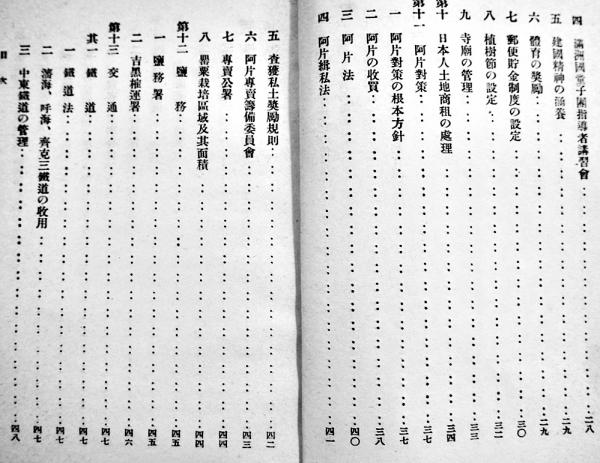 四 滿洲國童子團指導者講習會 二八
五 建國精神の涵養 二九
六 體育の奬勵 二九
七 郵便貯金制度の設定 三〇
八 植樹節の設定 三二
九 寺廟の管理 三三
第十 日本人土地商租の處理 三四
第十一 阿片對策 三七
一 阿片對策の根本方針 三七
二 阿片の收買 三八
三 阿片法 四〇
四 阿片緝私法 四一
五 査獲私土奬勵規則 四二
六 阿片專賣籌備委員會 四三
七 專賣公署 四四
八 罌粟栽培區域及其面積 四四
第十二 鹽務 四五
一 鹽務署 四五
二 吉黑榷運署 四六
第十三 交通 四七
其一 鐵道 四七
一 鐵道法 四七
二 瀋海、呼海、齊克三鐵道の收用 四七
三 中東鐵道の管理 四八
目次